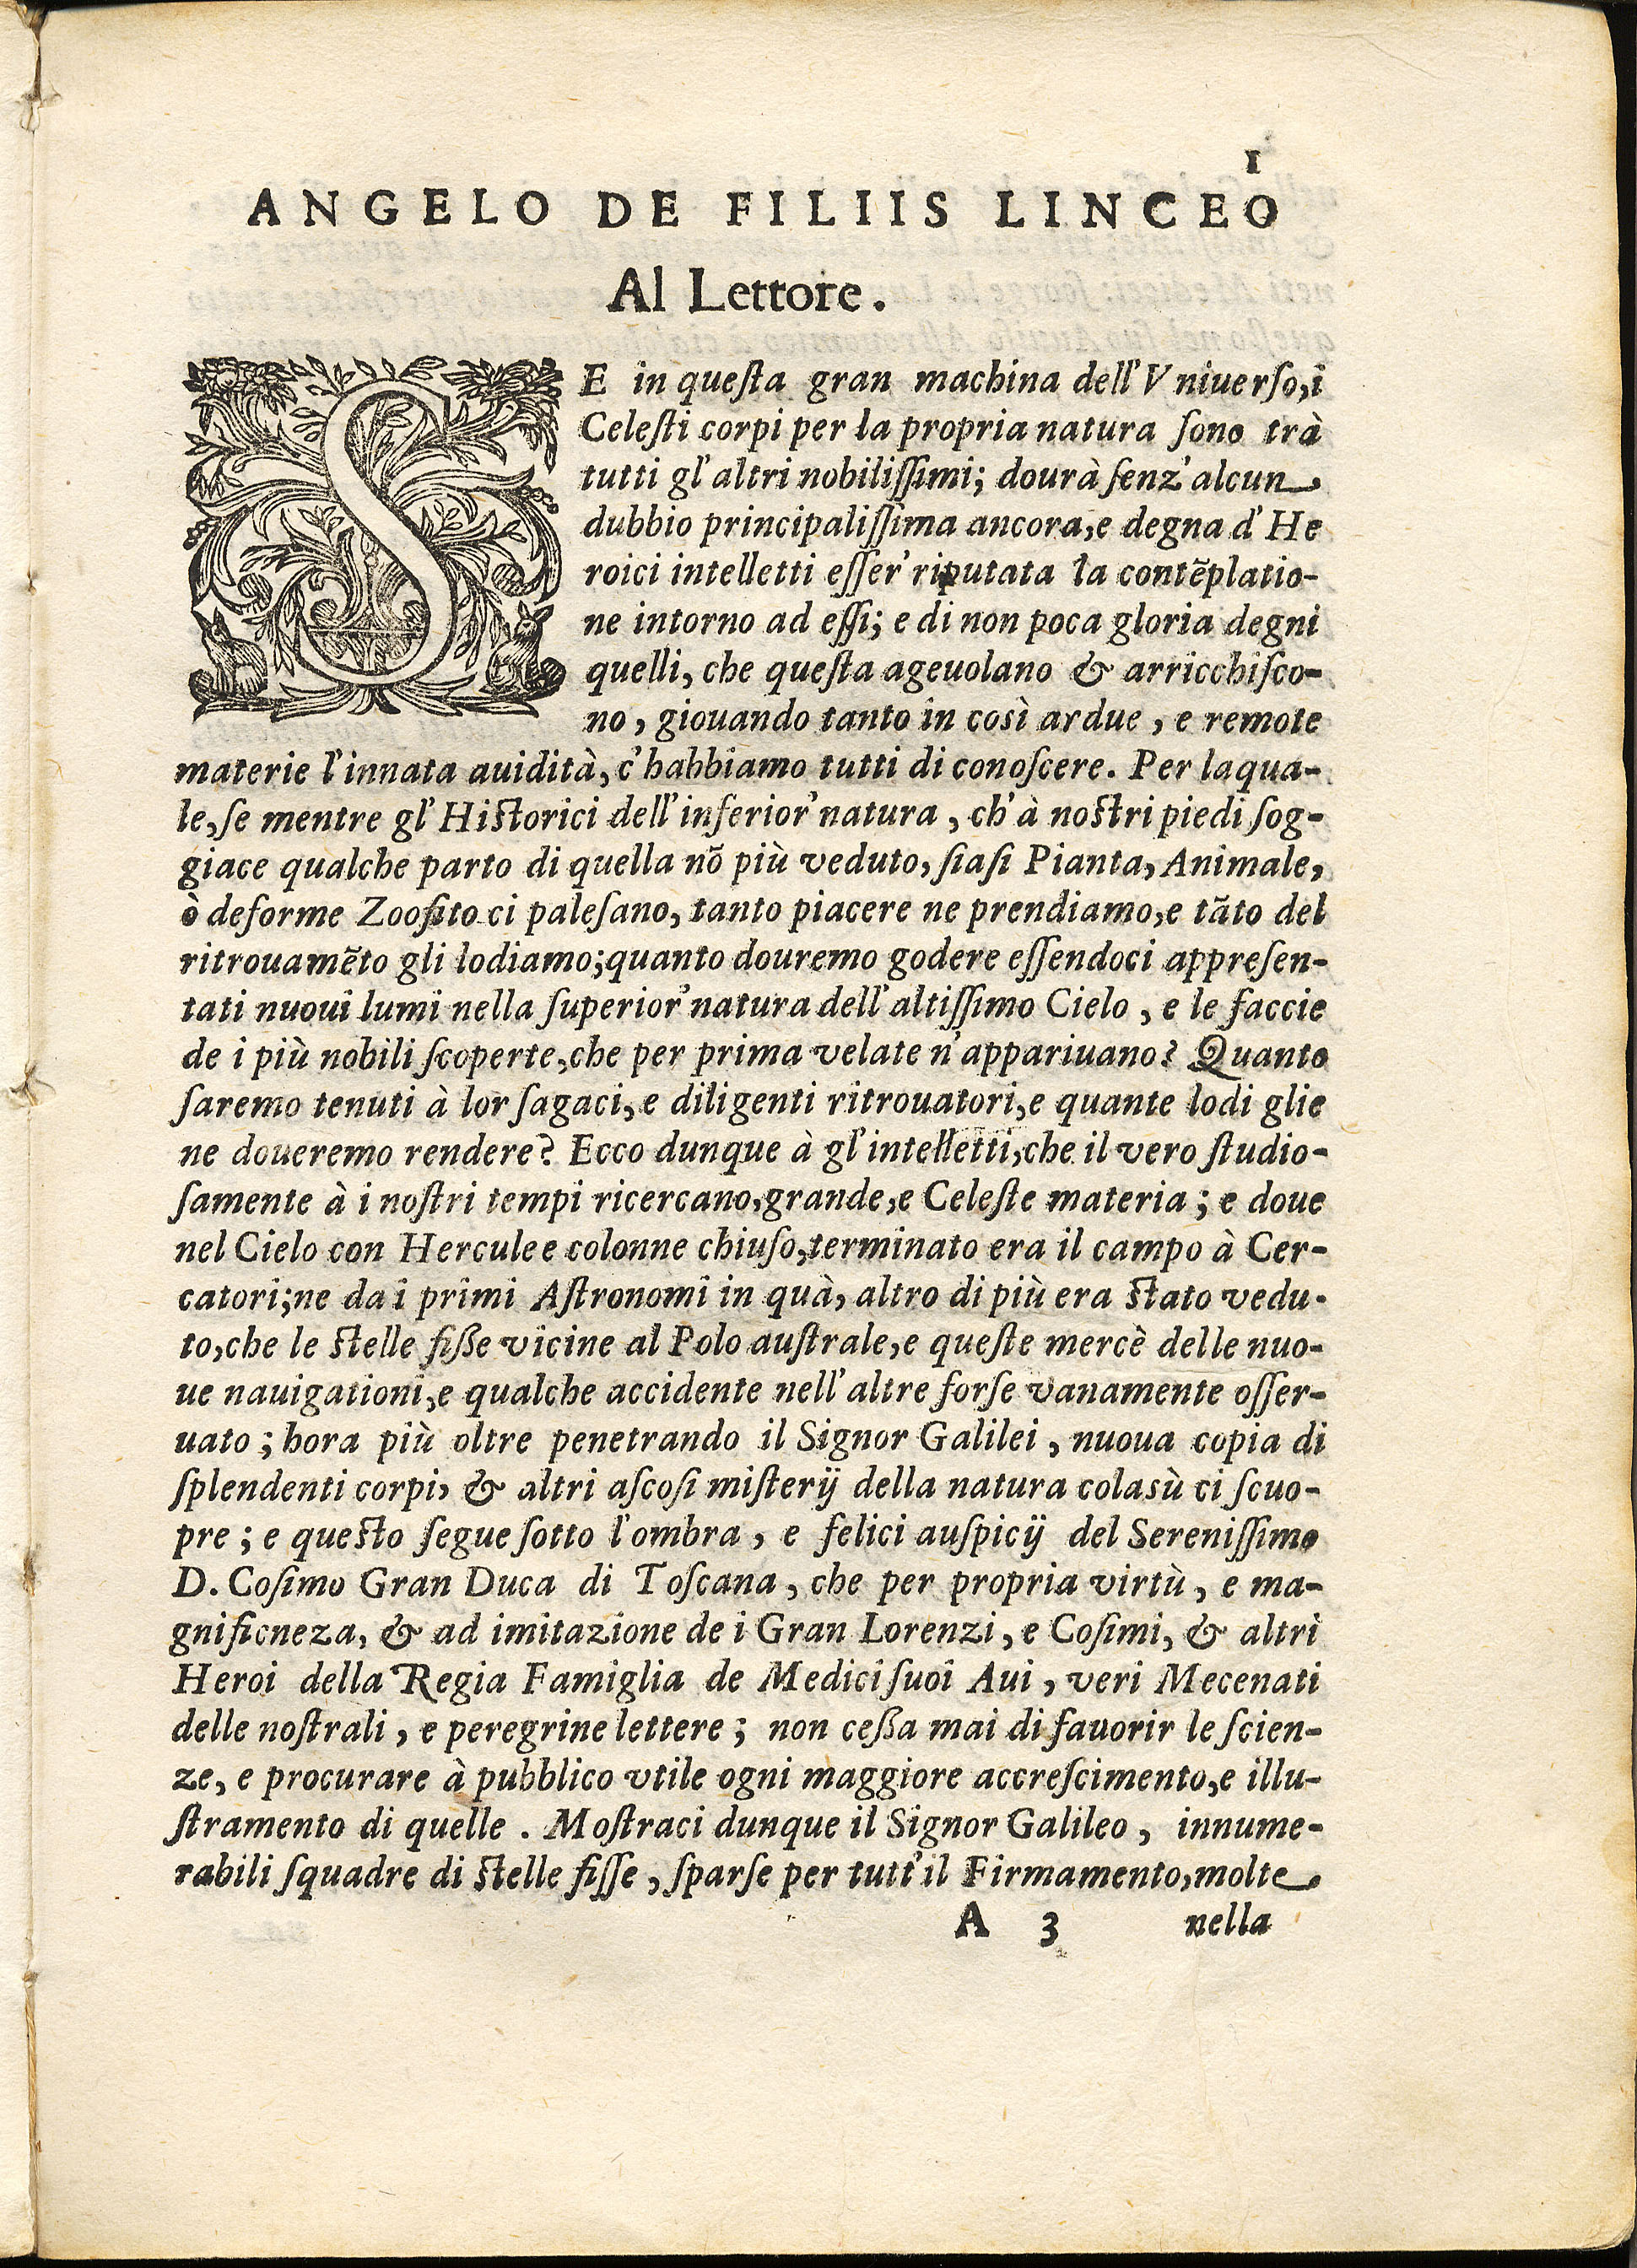 1
ANGELO DE FILIIS LINCEO
Al Lettore.
SE in queſta gran machina dell'Vniuerſo, i
Celeſti corpi per la propria natura ſono trà
tutti gl'altri nobiliſſimi; dourà ſenz'alcun
dubbio principaliſſima ancora, e degna d'He
roici intelletti eſſer' riputata la contẽplatio-
ne intorno ad eſſi; e di non poca gloria degni
quelli, che queſta ageuolano & arricchiſco-
no, giouando tanto in così ardue, e remote
materie l'innata auidità, c'habbiamo tutti di conoſcere. Per laqua-
le, ſe mentre gl'Hiſtorici dell'inferior' natura, ch'à noſtri piedi ſog-
giace qualche parto di quella nõ più veduto, ſiaſi Pianta, Animale,
ò deforme Zooſito ci paleſano, tanto piacere ne prendiamo, e tãto del
ritrouamẽto gli lodiamo; quanto douremo godere eſſendoci appreſen-
tati nuoui lumi nella ſuperior' natura dell'altiſſimo Cielo, e le faccie
de i più nobili ſcoperte, che per prima velate n'appariuano? Quanto
ſaremo tenuti à lor ſagaci, e diligenti ritrouatori, e quante lodi glie
ne doueremo rendere? Ecco dunque à gl'intelletti, che il vero ſtudio-
ſamente à i noſtri tempi ricercano, grande, e Celeſte materia; e doue
nel Cielo con Herculee colonne chiuſo, terminato era il campo à Cer-
catori; ne da i primi Aſtronomi in quà, altro di più era ſtato vedu-
to, che le ſtelle fiße vicine al Polo auſtrale, e queſte mercè delle nuo-
ue nauigationi, e qualche accidente nell'altre forſe vanamente oſſer-
uato; hora più oltre penetrando il Signor Galilei, nuoua copia di
ſplendenti corpi, & altri aſcoſi miſterij della natura colasù ci ſcuo-
pre; e queſto ſegue ſotto l'ombra, e felici auſpicij del Sereniſſimo
D. Coſimo Gran Duca di Toſcana, che per propria virtù, e ma-
gnificneza, & ad imitazione de i Gran Lorenzi, e Coſimi, & altri
Heroi della Regia Famiglia de Medici ſuoi Aui, veri Mecenati
delle noſtrali, e peregrine lettere; non ceßa mai di fauorir le ſcien-
ze, e procurare à pubblico vtile ogni maggiore accreſcimento, e illu-
ſtramento di quelle. Moſtraci dunque il Signor Galileo, innume-
rabili ſquadre di ſtelle fiſſe, ſparſe per tutt'il Firmamento, molte
A 3 nella